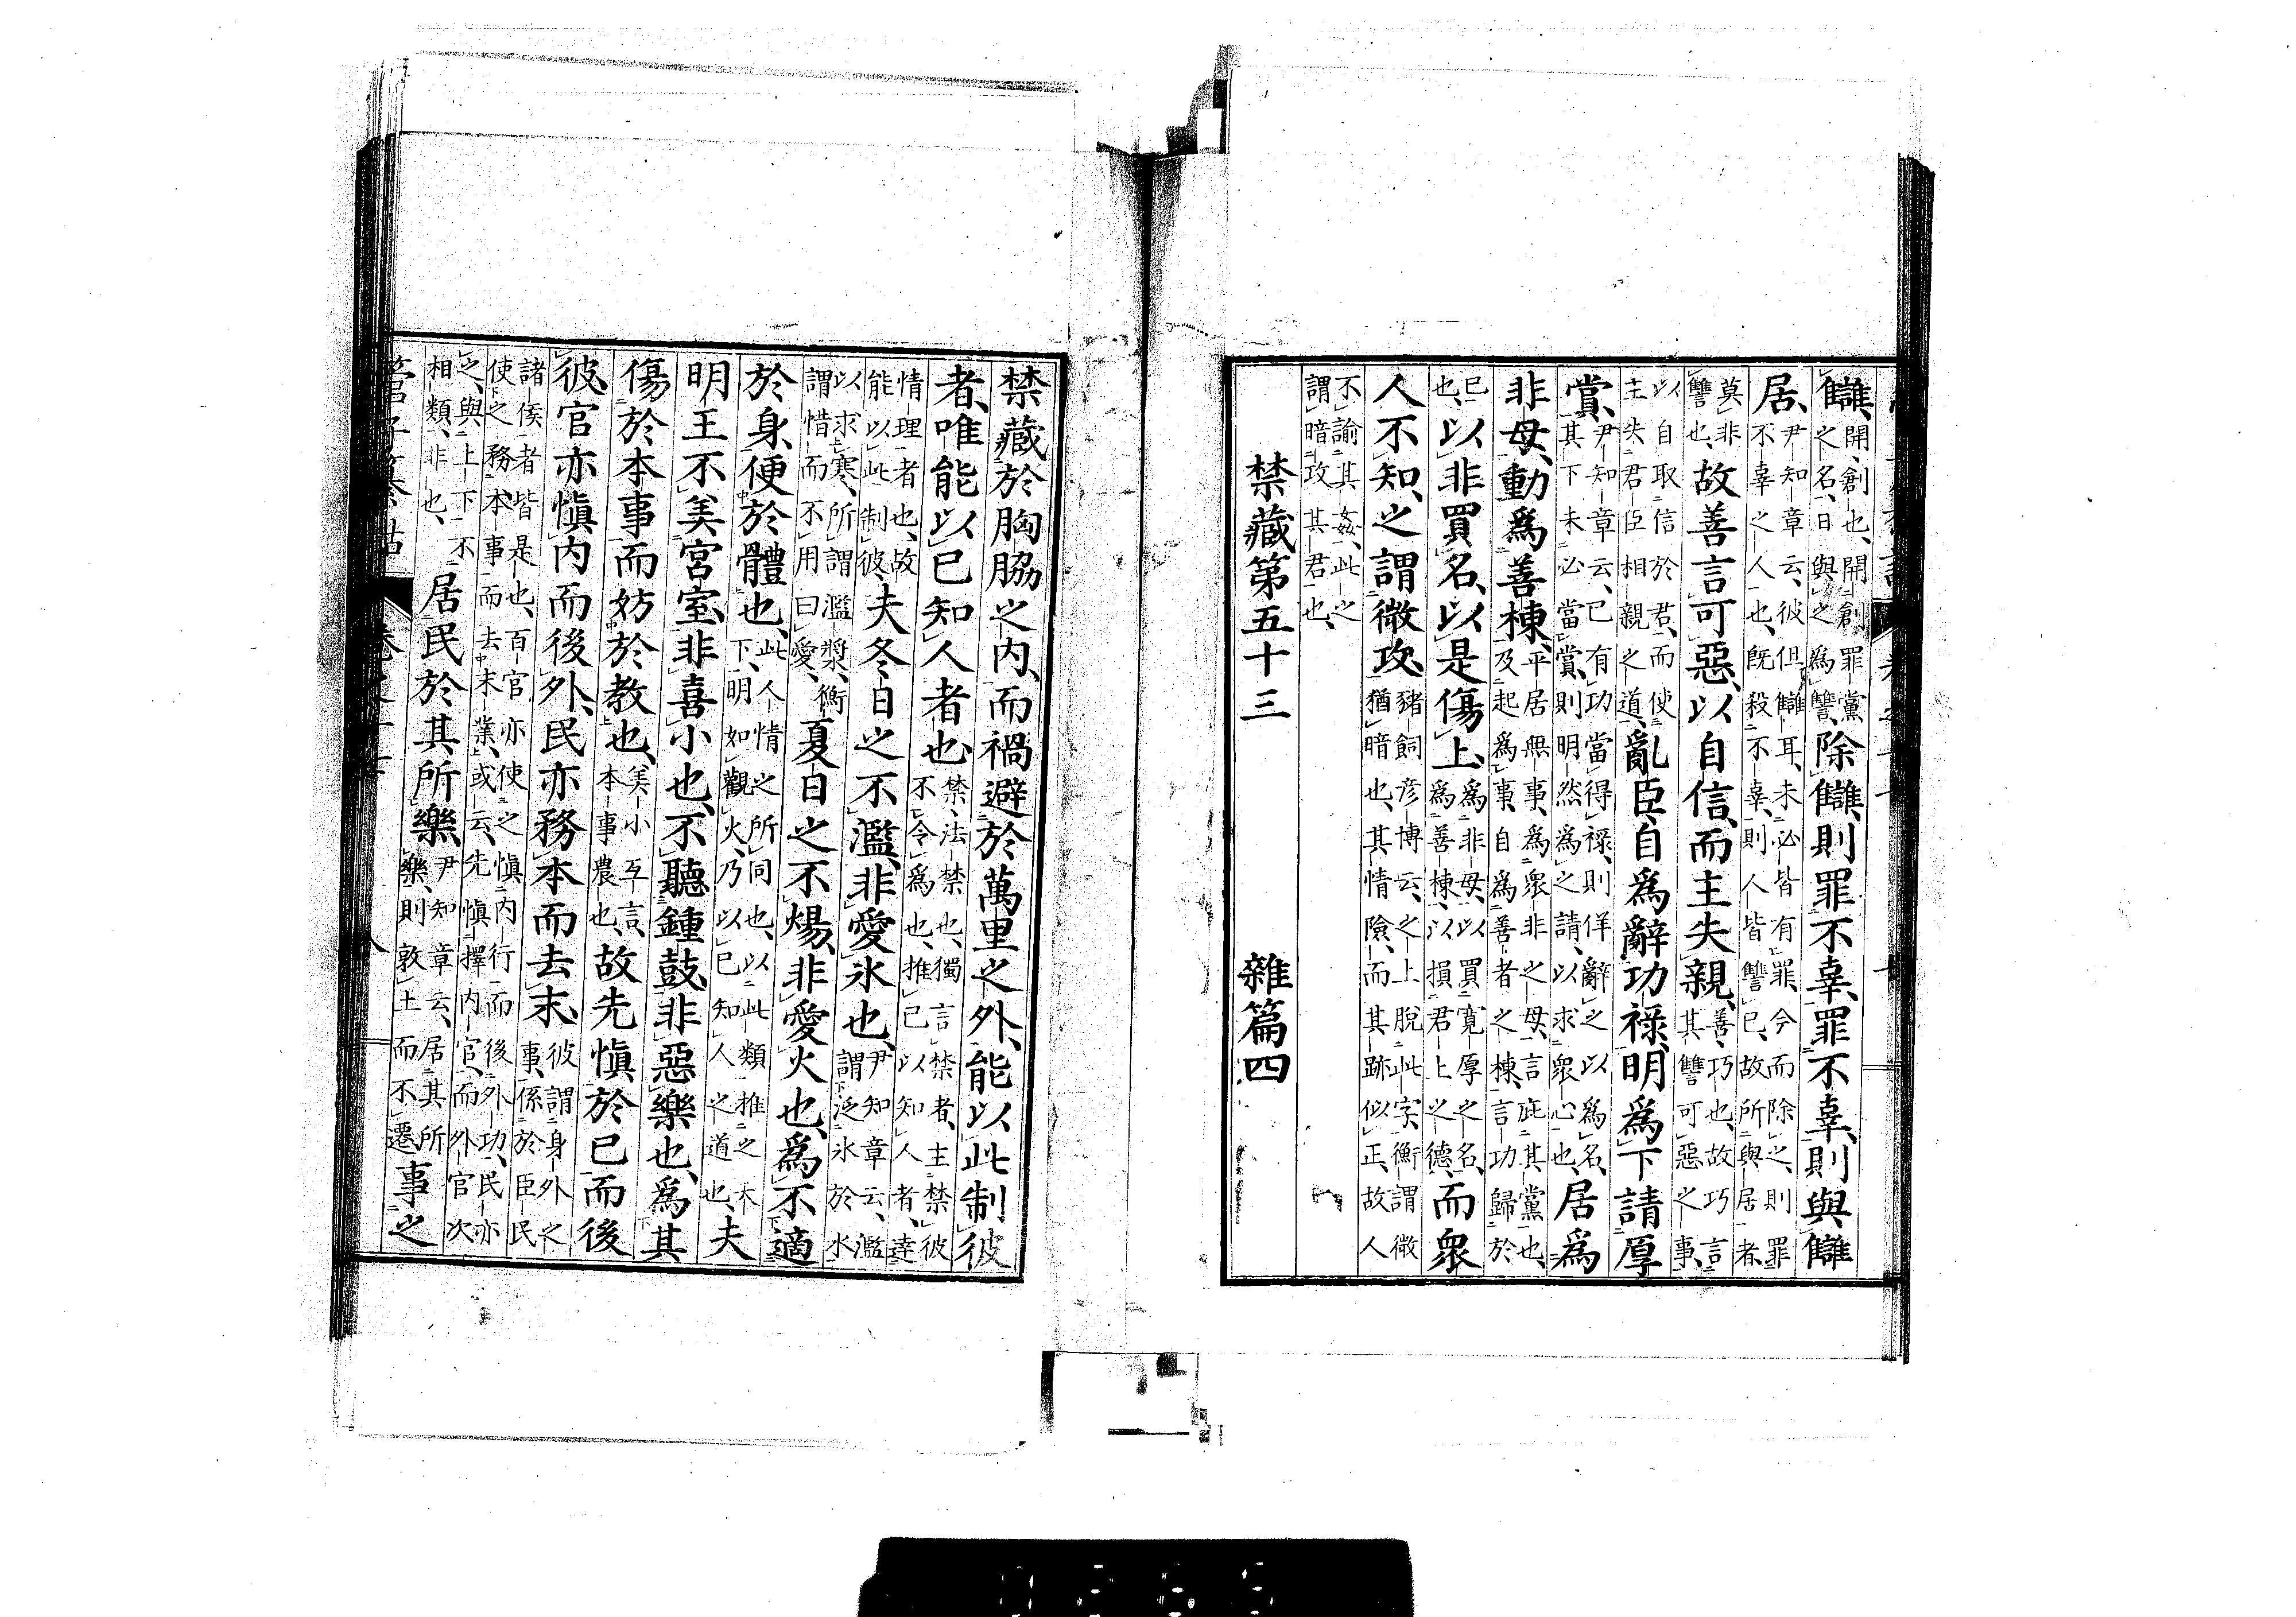 讎、開、創也、開創罪黨之名、曰與之爲讐、除讎、則罪不辜、罪不辜、則與讎
居、尹知章云、彼但讎耳、未必皆有罪、今而除之、則罪不辜之人也、既殺不辜、則人皆讐已、故所與居者、
莫非讐也、故善言可惡、以自信、而主失親、善、巧也、故巧言其讐可惡之事、
以自取信於君、而使主失君臣相親之道、亂臣、自爲辭功祿、明爲下請厚
賞、尹知章云、已有功當得祿、則佯辭之以爲名、其下未必當賞、則明然爲之請、以求衆心也、居爲
非母、動爲善棟、平居無事、爲衆非之母、言庇其黨也、及起爲事、自爲善者之棟、言功歸於
已也、以非買名、以是傷上、爲非母、以買寬厚之名、爲善棟、以損君上之德、而衆
人不知、之謂微攻、豬飼彦博云、之上脫此字、衡謂微猶暗也、其情險、而其跡似正、故人
不諭其姦、此之謂暗攻其君也、
禁藏第五十三　雜篇四
禁藏於胸脇之内、而禍避於萬里之外、能以此制彼
者、唯能以已知人者也、禁、法禁也、獨言禁者、主禁彼不令爲也、推已以知人者、達
情理者也、故能以此制彼、夫冬日之不濫、非愛氷也、尹知章云、濫謂泛氷於水
以求寒、所謂濫漿、衡謂惜而不用曰愛、夏日之不煬、非愛火也、爲不適
於身、便於體也、此人情之所同也、以此類推之天下、明如觀火、乃以已知人之道也、夫
明王不美宮室、非喜小也、不聽鍾鼓、非惡樂也、爲其
傷於本事、而妨於教也、美小互言、本事農也、故先愼於已而後
彼、官亦愼内而後外、民亦務本而去末、彼謂身外之事、係於臣民
諸侯者皆是也、百官亦使之愼内行而後外功、民亦使之務本事而去末業、或云、先愼擇内官、而外官次
之、與上下不相類、非也、居民於其所樂、尹知章云、居其所樂、則敦土而不遷、事之